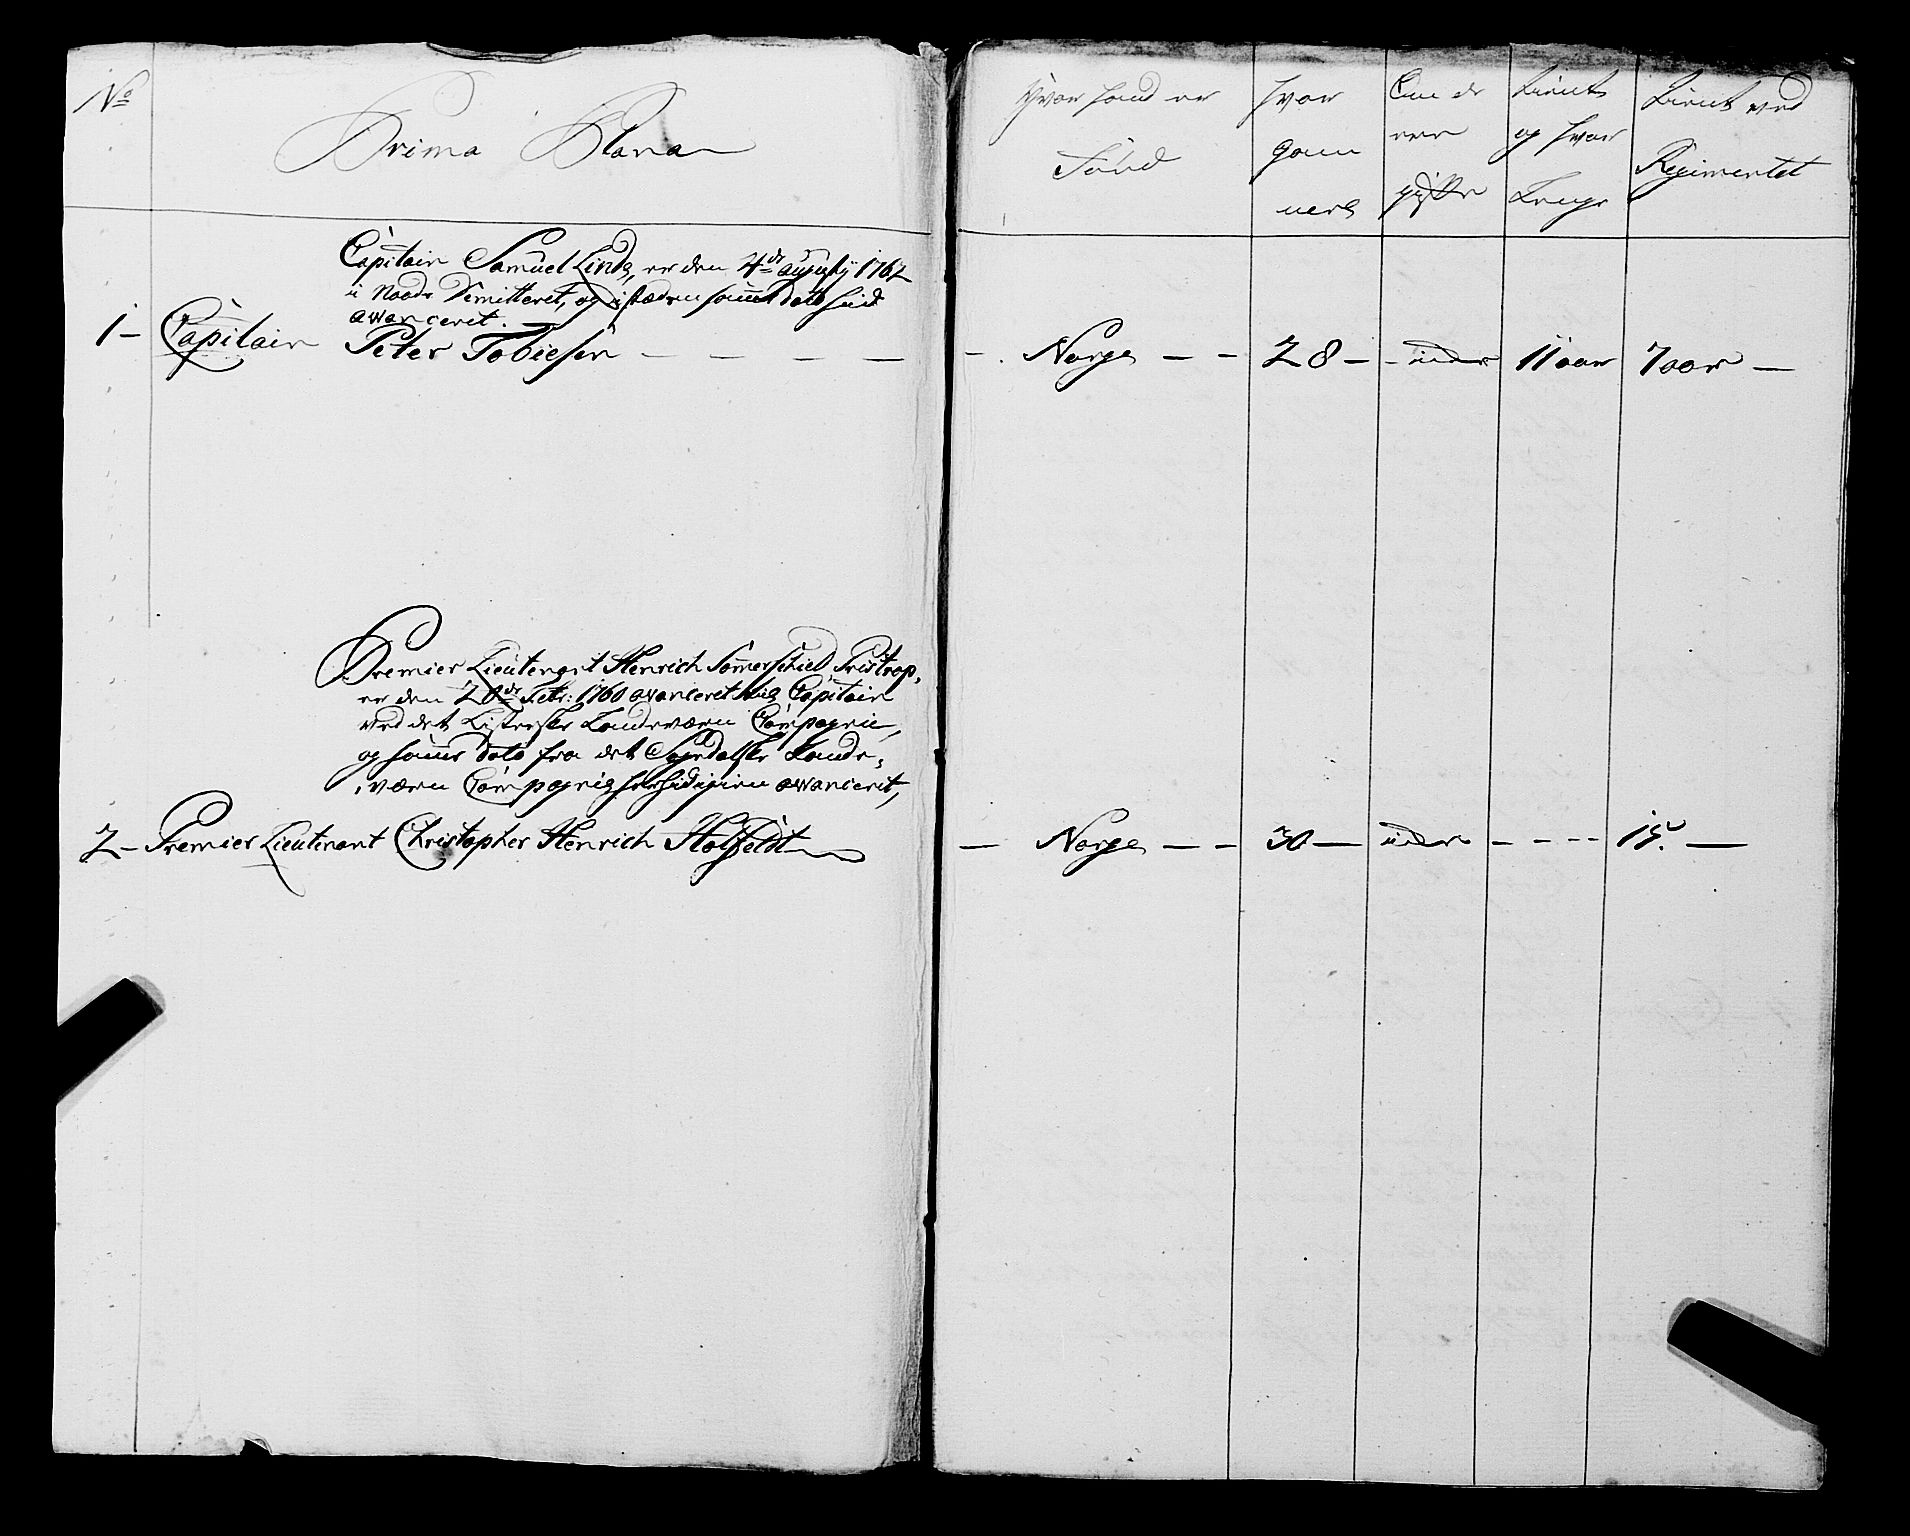 No
Prima Plana
Hvor hand er
FØdt
Hvor
Gam
mel
Om de
ere
gifte
Tient
og hvor
Lenge
Tient ved
Regimentet
Capitain Samuel Linde, er den 4de Augusty 1762
i Naade Demitteret, og i stæden samme dato hid
avanceret.
1 - Capitain Peter Tobiesen - - - -
- Norge - - 28 - - 11 aar 7 aar -
Premier Lieutenant Henrich Sommerschield Tristrop,
er den 20de Febr: 1760 avanceret til Capitain
ved det Listerske Landeværn Compagnie,
og samme dato fra det Lande-
værn Compagnie avancerit,
2 - Premier Lieutenant Christopher Henrich Holfeldt
- Norge - - 30 - - - - - 15. -